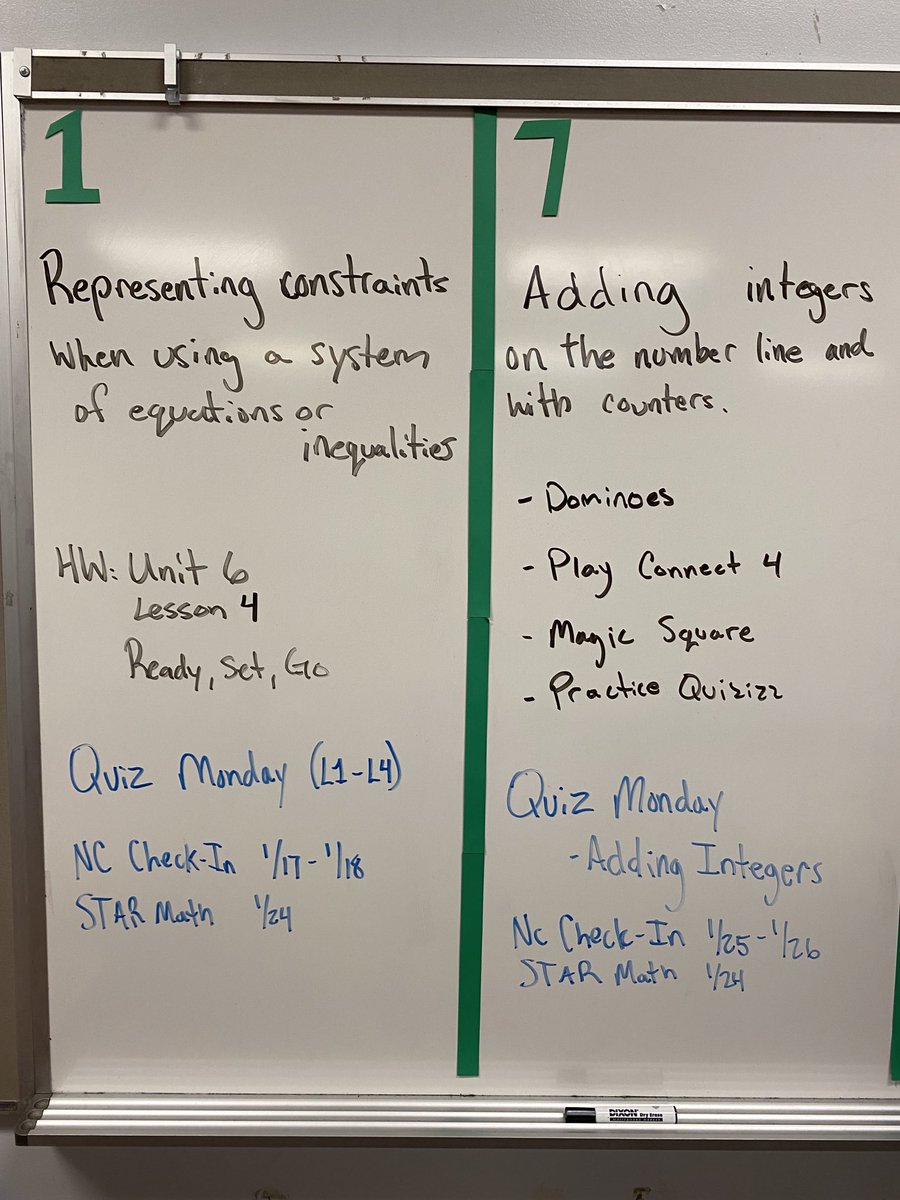 1
Representing constraints
when using a system
of equations or
inequalities
HW: Unit 6
Lesson 4
Ready, Set, Go
Quiz Monday (L1-L4)
NC Check-In 1/17-1/18
STAR Math 1/24
7
Adding integers
on the number line and
with counters.
- Dominoes
- Play Connect 4
- Magic Square
- Practice Quizizz
Quiz Monday
- Adding Integers
NC Check-In 1/25-1/26
STAR Math 1/24
DIXON Dry Erase